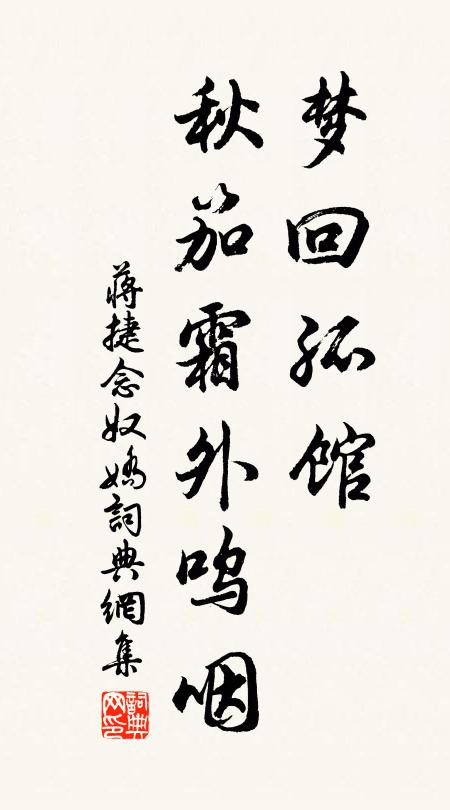 梦回孤馆
秋笳霜外呜咽
蒋捷念奴娇詞典網集
詞典网印